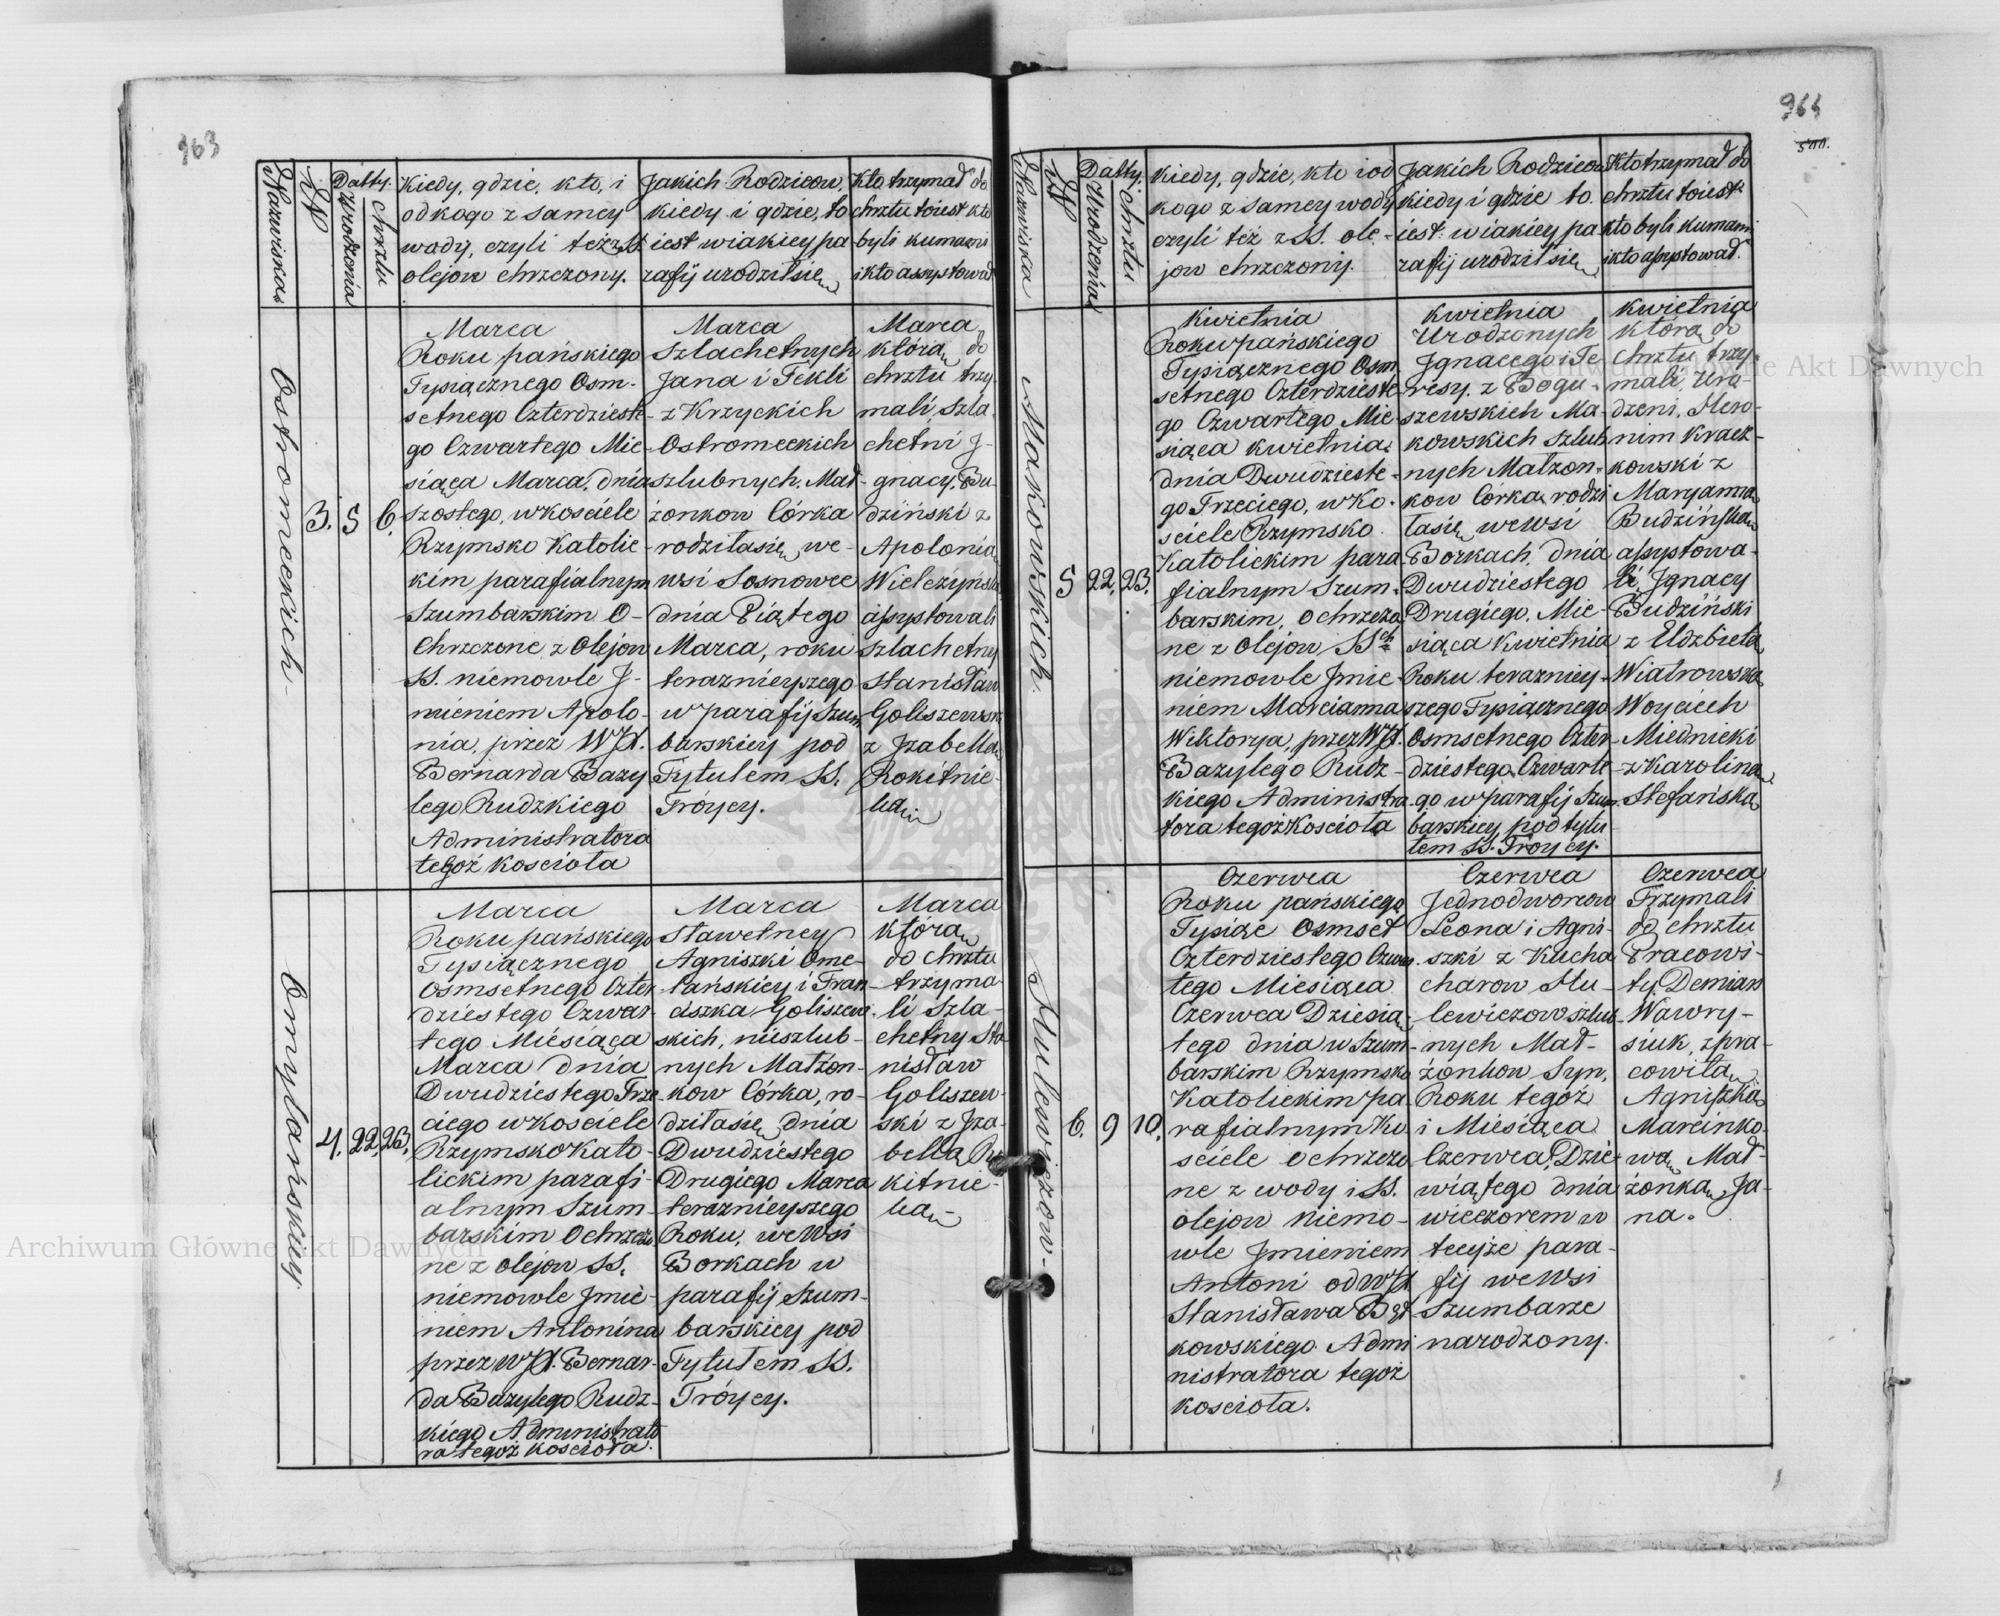 963
Nazwiska
N
Datty.
Urodzenia
Chrztu
Kiedy, gdzie, kto, i
od kogo z samey
wody, czyli też z SS.
olejow chrzczony.
Jakich Rodzicow,
kiedy i gdzie, to
iest wiakiey pa
rafij urodził się
Kto trzymał do
chrztu to iest kto
byli kumami
i kto assystował
Ostromeckich
3.
5
6.
Marca
Roku pańskiego
Tysiącznego Osm-
setnego Czterdzieste-
go Czwartego Mie-
siąca Marca, dnia
Szostego, w kosciele
Rzymsko Katolic-
kim parafialnym
Szumbarskim O-
Chrzczone z Olejow
SS. niemowle J-
mieniem Apolo-
nia, przez WJX.
Bernarda Bazy
lego Rudzkiego
Administratora
tegoż kosciola
Marca
Szlachetnych
Jana i Tekli
z Krzyckich
Ostromeckich
szlubnych, Mał-
żonkow Córka
rodziła się, we-
wsi Sosnowce
dnia Piątego
Marca, roku
teraznieyszego
w parafij Szum
barskiey pod
Tytułem SS.
Tróycy.
Marca
którą do
chrztu trzy-
mali, Szla-
chetni J-
gnacy, Bu-
dziński z
Apolonią
assystowali
Szlachetny
Stanisław
z Jzabellą
Rokitnic-
ką
Omylańskiey
4.
22,
23,
Marca
Roku pańskiego
Tysiącznego
Osmsetnego Czter
dziestego Czwar-
tego Miesiąca
Marca dnia
Dwudziestego Trze-
ciego w kosciele
Rzymsko Kato-
lickim parafi-
alnym Szum-
barskim Ochrzczo
ne z olejow SS.
niemowle Jmie-
niem Antonina
przez WJX. Bernar-
da Bazylego Rudz-
kiego Administrato
ra tegoż kosciola.
Marca
Sławetney
Agniszki Ome-
lańskiey i Fran-
ciszka Goliszew-
skich, nieszlub-
nych Małżon-
kow Córka, ro-
dziła się dnia
Dwudziestego
Drugiego Marca
teraznieyszego
Roku, we Wsi
Borkach w
parafij Szum-
barskiey pod
Tytułem SS.
Tróycy.
Marca
którą
do chrztu
trzyma-
li Szla-
chetny Sta
nisław
Goliszew-
ski z Jza-
bellą Ro
kitnic-
ką
964
Nazwiska
N
Datty.
Urodzenia
Chrztu
Kiedy, gdzie, kto i od
kogo z samey wody
czyli też z SS. ole-
jow chrzczony.
Jakich Rodzicow
kiedy i gdzie to
iest wiakiey pa
rafij urodził się
Kto trzymał do
chrztu to iest
kto byli kumami
i kto assystował.
Makowskich
5
22,
23.
Kwietnia
Roku pańskiego
Tysiącznego Osm
setnego Czterdzieste
go Czwartego Mie-
siąca kwietnia
dnia Dwudzieste-
go Trzeciego, w Ko-
sciele Rzymsko
Katolickim para
fialnym Szum-
barskim, Ochrzczo
ne z olejow SSch
niemowle Jmie-
niem Marcianna
Wiktorya, przez WJX.
Bazylego Rudz-
kiego Administra-
tora tegoż Kosciola
kwietnia
Urodzonych
Jgnacego i Te
resy z Bogu-
szewskich Ma-
kowskich szlub
nych Małżon-
kow Córka, rodzi
ła się we wsi
Borkach, dnia
Dwudziestego
Drugiego, Mie-
siąca kwietnia
Roku terazniey-
szego Tysiącznego
Osmsetnego Czter-
dziestego Czwarte-
go w parafij Szum
barskiey pod tytu-
łem SS. Troycy.
kwietnia
którą do
chrztu trzy-
mali, Uro-
dzeni, Hero-
nim Kracz-
kowski z
Maryanną
Budzińską
assystowa-
li, Jgnacy
Budziński
z Elzbietą
Wiatrowską
Woyciech
Miednicki
z Karoliną
Stefańską
Hulewiczow
6.
9
10.
Czerwca
Roku pańskiego
Tysiąc Osmset
Czterdziestego Czwar-
tego Miesiąca
Czerwca Dziesią-
tego dnia w Szum-
barskim Rzymsko
Katolickim pa
rafialnym Ko
sciele Ochrzczo
ne z wody i SS.
olejow niemo-
wle Jmieniem
Antoni od WJX
Stanisława Bąt
kowskiego Admi
nistratora tegoż
kosciola.
Czerwca
Jednodworcow
Leona i Agni-
szki z Kucha
charow Hu-
lewiczow szlub-
nych Mał-
żonkow Syn,
Roku tegoż
i Miesiąca
Czerwca, Dzie-
wiątego dnia
wieczorem w
teyże para-
fij we Wsi
Szumbarze
narodzony.
Czerwca
Trzymali
do chrztu
Pracowi-
ty Demian
Wawry-
suk, z pra-
cowitą
Agniszką
Marcinko-
wą Mał-
żonką Ja-
na.
Archiwum Główne Akt Dawnych
Archiwum Główne Akt Dawnych